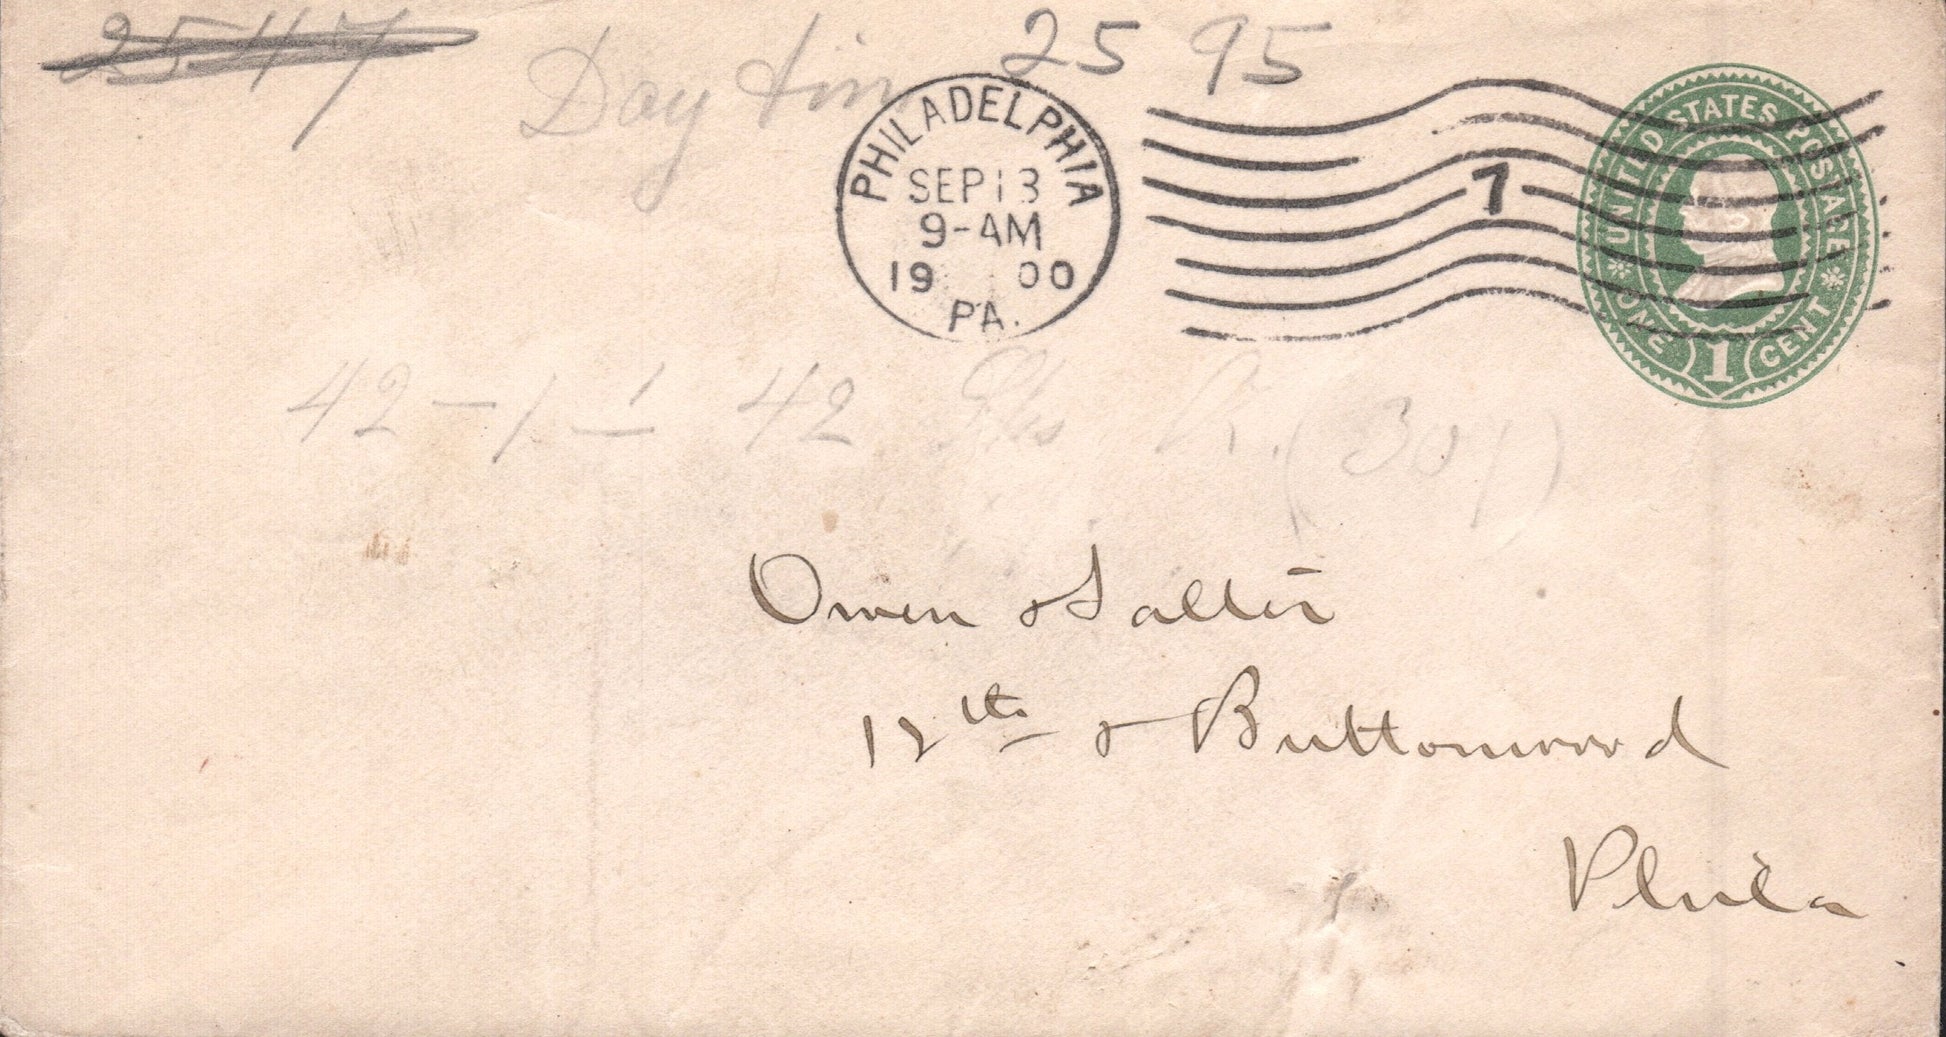 2547 Day tim 25 95
PHILADELPHIA
SEP 13
9-AM
19 00
PA.
7
UNITED STATES POSTAGE
ONE 1 CENT
42 - 1 42 (307)
Owen & Salter
12th & Buttonwood
Phila